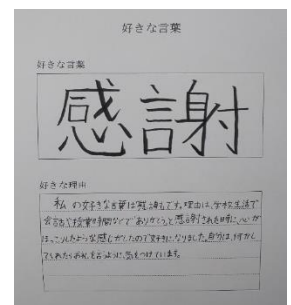 好きな言葉
好きな言葉
感謝
好きな理由
私の好きな言葉は感謝です。理由は、学校生活で
会話や授業時間などで「ありがとう」と感謝された時に、心が
ほっこりしたような感じがしたので好きになりました。自分は、何かし
てもらったらお礼を言うように、気をつけています。